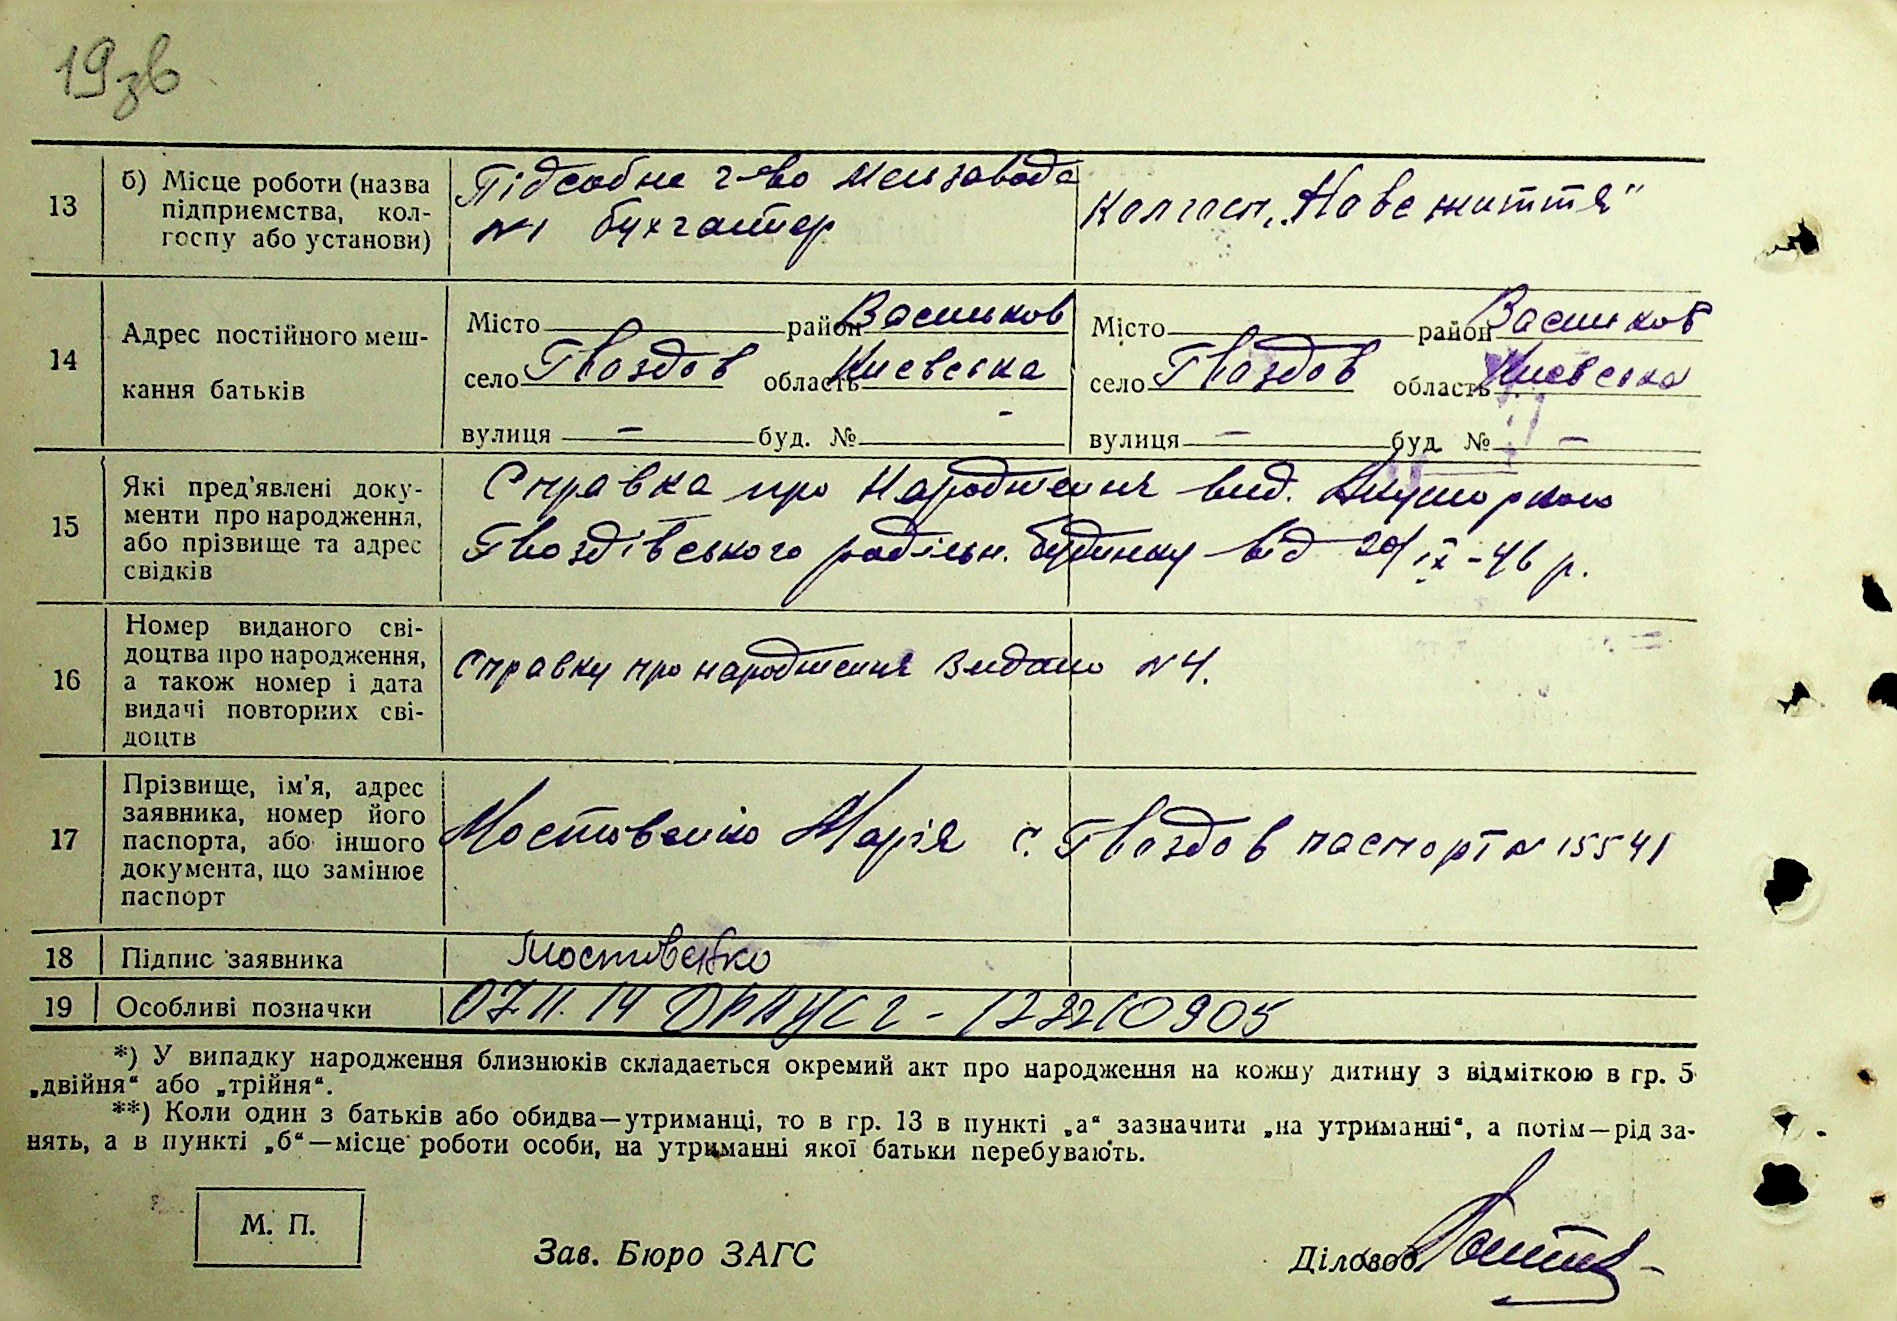 19зв
13 б) Місце роботи (назва
підприємства, кол-
госпу або установи)
Підсобне г-во мельзавода
№1 бухгалтер
колгосп „Нове життя"
14 Адрес постійного меш-
кання батьків
Місто район Васильков
село Гвоздов область Киевська
вулиця — буд. № -
Місто район Васильков
село Гвоздов область Киевська
вулиця — буд. № —
15 Які пред'явлені доку-
менти про народження,
або прізвище та адрес
свідків
Справка про народження вид.
Гвоздівського родільн. будинку від 20/IX-46 р.
16 Номер виданого сві-
доцтва про народження,
а також номер і дата
видачі повторних сві-
доцтв
Справку про народження видано №4.
17 Прізвище, ім'я, адрес
заявника, номер його
паспорта, або іншого
документа, що замінює
паспорт
Мостовенко Марія с. Гвоздов паспорт № 15541
18 Підпис заявника Мостовенко
19 Особливі позначки 07.11.14 ДРАЦСГ - 12210905
*) У випадку народження близнюків складається окремий акт про народження на кожну дитину з відміткою в гр. 5
„двійня“ або „трійня“.
**) Коли один з батьків або обидва—утриманці, то в гр. 13 в пункті „а“ зазначити „на утриманні“, а потім—рід за-
нять, а в пункті „б“—місце роботи особи, на утриманні якої батьки перебувають.
М. П.
Зав. Бюро ЗАГС
Діловод